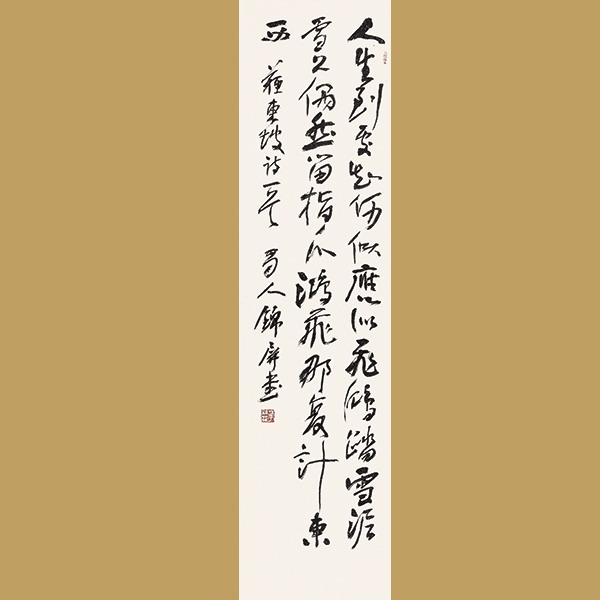 人生到處知何似應似飛鴻踏雪泥
雪上偶然留指爪鴻飛那复計東
西 蘇東坡诗一首 蜀人錦屏書